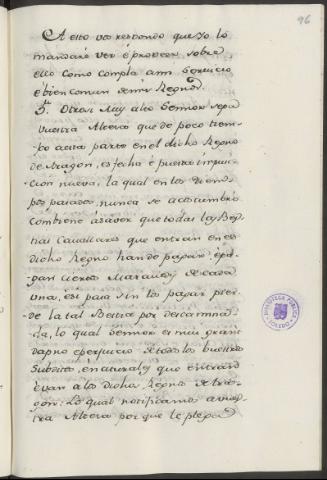 96
A esto vos respondo que Yo lo
mandaré ver é proveer sobre
ello como compla a mi Servicio
é bien comun de mis Regnos.
5.ª Otrosi Muy alto Sennor sepa
vuestra Alteza que de poco tiem-
po acá parte en el dicho Regno
de Aragon, es fecha é puesta impusi-
cion nueva, la qual en los tiem-
pos pasados, nunca se acostumbró
combiene á saver que todas las Bes-
tias Cavallares que entran en ese
dicho Regno han de pagar é pa-
gan ciertos Maravedis de cada
una, é si pasa sin los pagar pier-
de la tal Bestia por descamina-
da, lo qual Sennor es mui grant
dapno é perjuicio de todos los vuestros
Subditos, e naturales que entran
é van a los dichos Regnos de Ara-
gon: Lo qual notificamos a vues-
tra Alteza por que le plega
BIBLIOTECA PUBLICA
TOLEDO